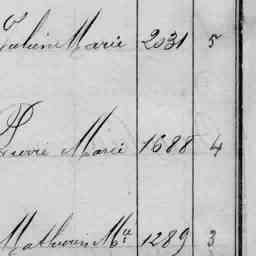 Julien Marie 2031 5
Pierre Marie 1688 4
Mathurin Mie 1289 3